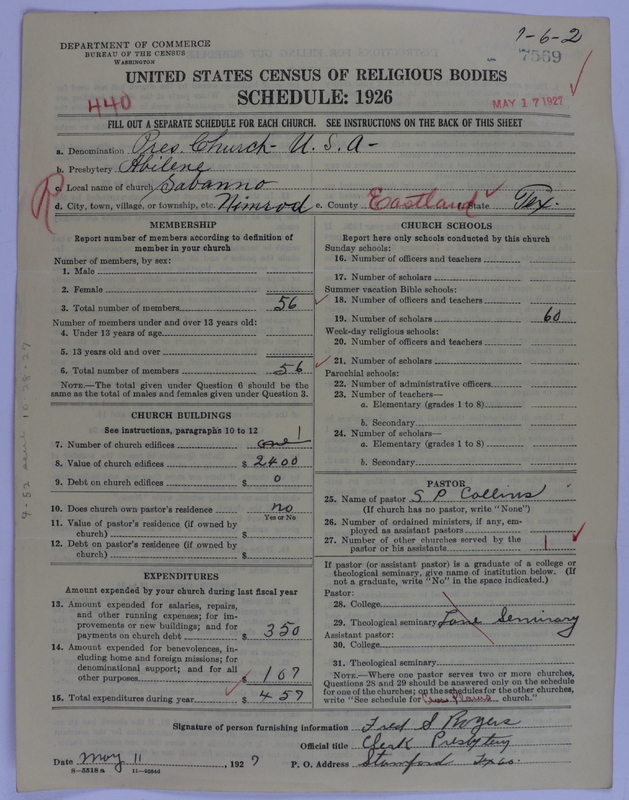 DEPARTMENT OF COMMERCE
BUREAU OF THE CENSUS
WASHINGTON
1-6-2
7569
UNITED STATES CENSUS OF RELIGIOUS BODIES
SCHEDULE: 1926
440
MAY 17 1927
FILL OUT A SEPARATE SCHEDULE FOR EACH CHURCH. SEE INSTRUCTIONS ON THE BACK OF THIS SHEET
a. Denomination Pres. Church - U. S. A -
b. Presbytery Abilene
c. Local name of church Sabanno
d. City, town, village, or township, etc. Nimrod e. County Eastland State Tex.
R
MEMBERSHIP
Report number of members according to definition of
member in your church
Number of members, by sex:
1. Male
2. Female
3. Total number of members 56
Number of members under and over 13 years old:
4. Under 13 years of age
5. 13 years old and over
6. Total number of members 56
NOTE.—The total given under Question 6 should be the
same as the total of males and females given under Question 3.
CHURCH BUILDINGS
See instructions, paragraphs 10 to 12
7. Number of church edifices one 1
8. Value of church edifices $ 2400
9. Debt on church edifices $ 0
10. Does church own pastor's residence no
Yes or No
11. Value of pastor's residence (if owned by
church) $
12. Debt on pastor's residence (if owned by
church) $
EXPENDITURES
Amount expended by your church during last fiscal year
13. Amount expended for salaries, repairs,
and other running expenses; for im-
provements or new buildings; and for
payments on church debt $ 350
14. Amount expended for benevolences, in-
cluding home and foreign missions; for
denominational support; and for all
other purposes $ 107
15. Total expenditures during year $ 457
CHURCH SCHOOLS
Report here only schools conducted by this church
Sunday schools:
16. Number of officers and teachers
17. Number of scholars
Summer vacation Bible schools:
18. Number of officers and teachers
19. Number of scholars 60
Week-day religious schools:
20. Number of officers and teachers
21. Number of scholars
Parochial schools:
22. Number of administrative officers
23. Number of teachers—
a. Elementary (grades 1 to 8)
b. Secondary
24. Number of scholars—
a. Elementary (grades 1 to 8)
b. Secondary
PASTOR
25. Name of pastor S P Collins
(If church has no pastor, write "None")
26. Number of ordained ministers, if any, em-
ployed as assistant pastors
27. Number of other churches served by the
pastor or his assistants 1
If pastor (or assistant pastor) is a graduate of a college or
theological seminary, give name of institution below. (If
not a graduate, write "No" in the space indicated.)
Pastor:
28. College
29. Theological seminary Lane Seminary
Assistant pastor:
30. College
31. Theological seminary
NOTE.—Where one pastor serves two or more churches,
Questions 28 and 29 should be answered only on the schedule
for one of the churches; on the schedules for the other churches,
write "See schedule for Cross Plains church."
Signature of person furnishing information Fred S Rogers
Official title Clerk Presbytery
Date May 11, 1927 P. O. Address Stamford Texas.
8—5518a 11—9224d